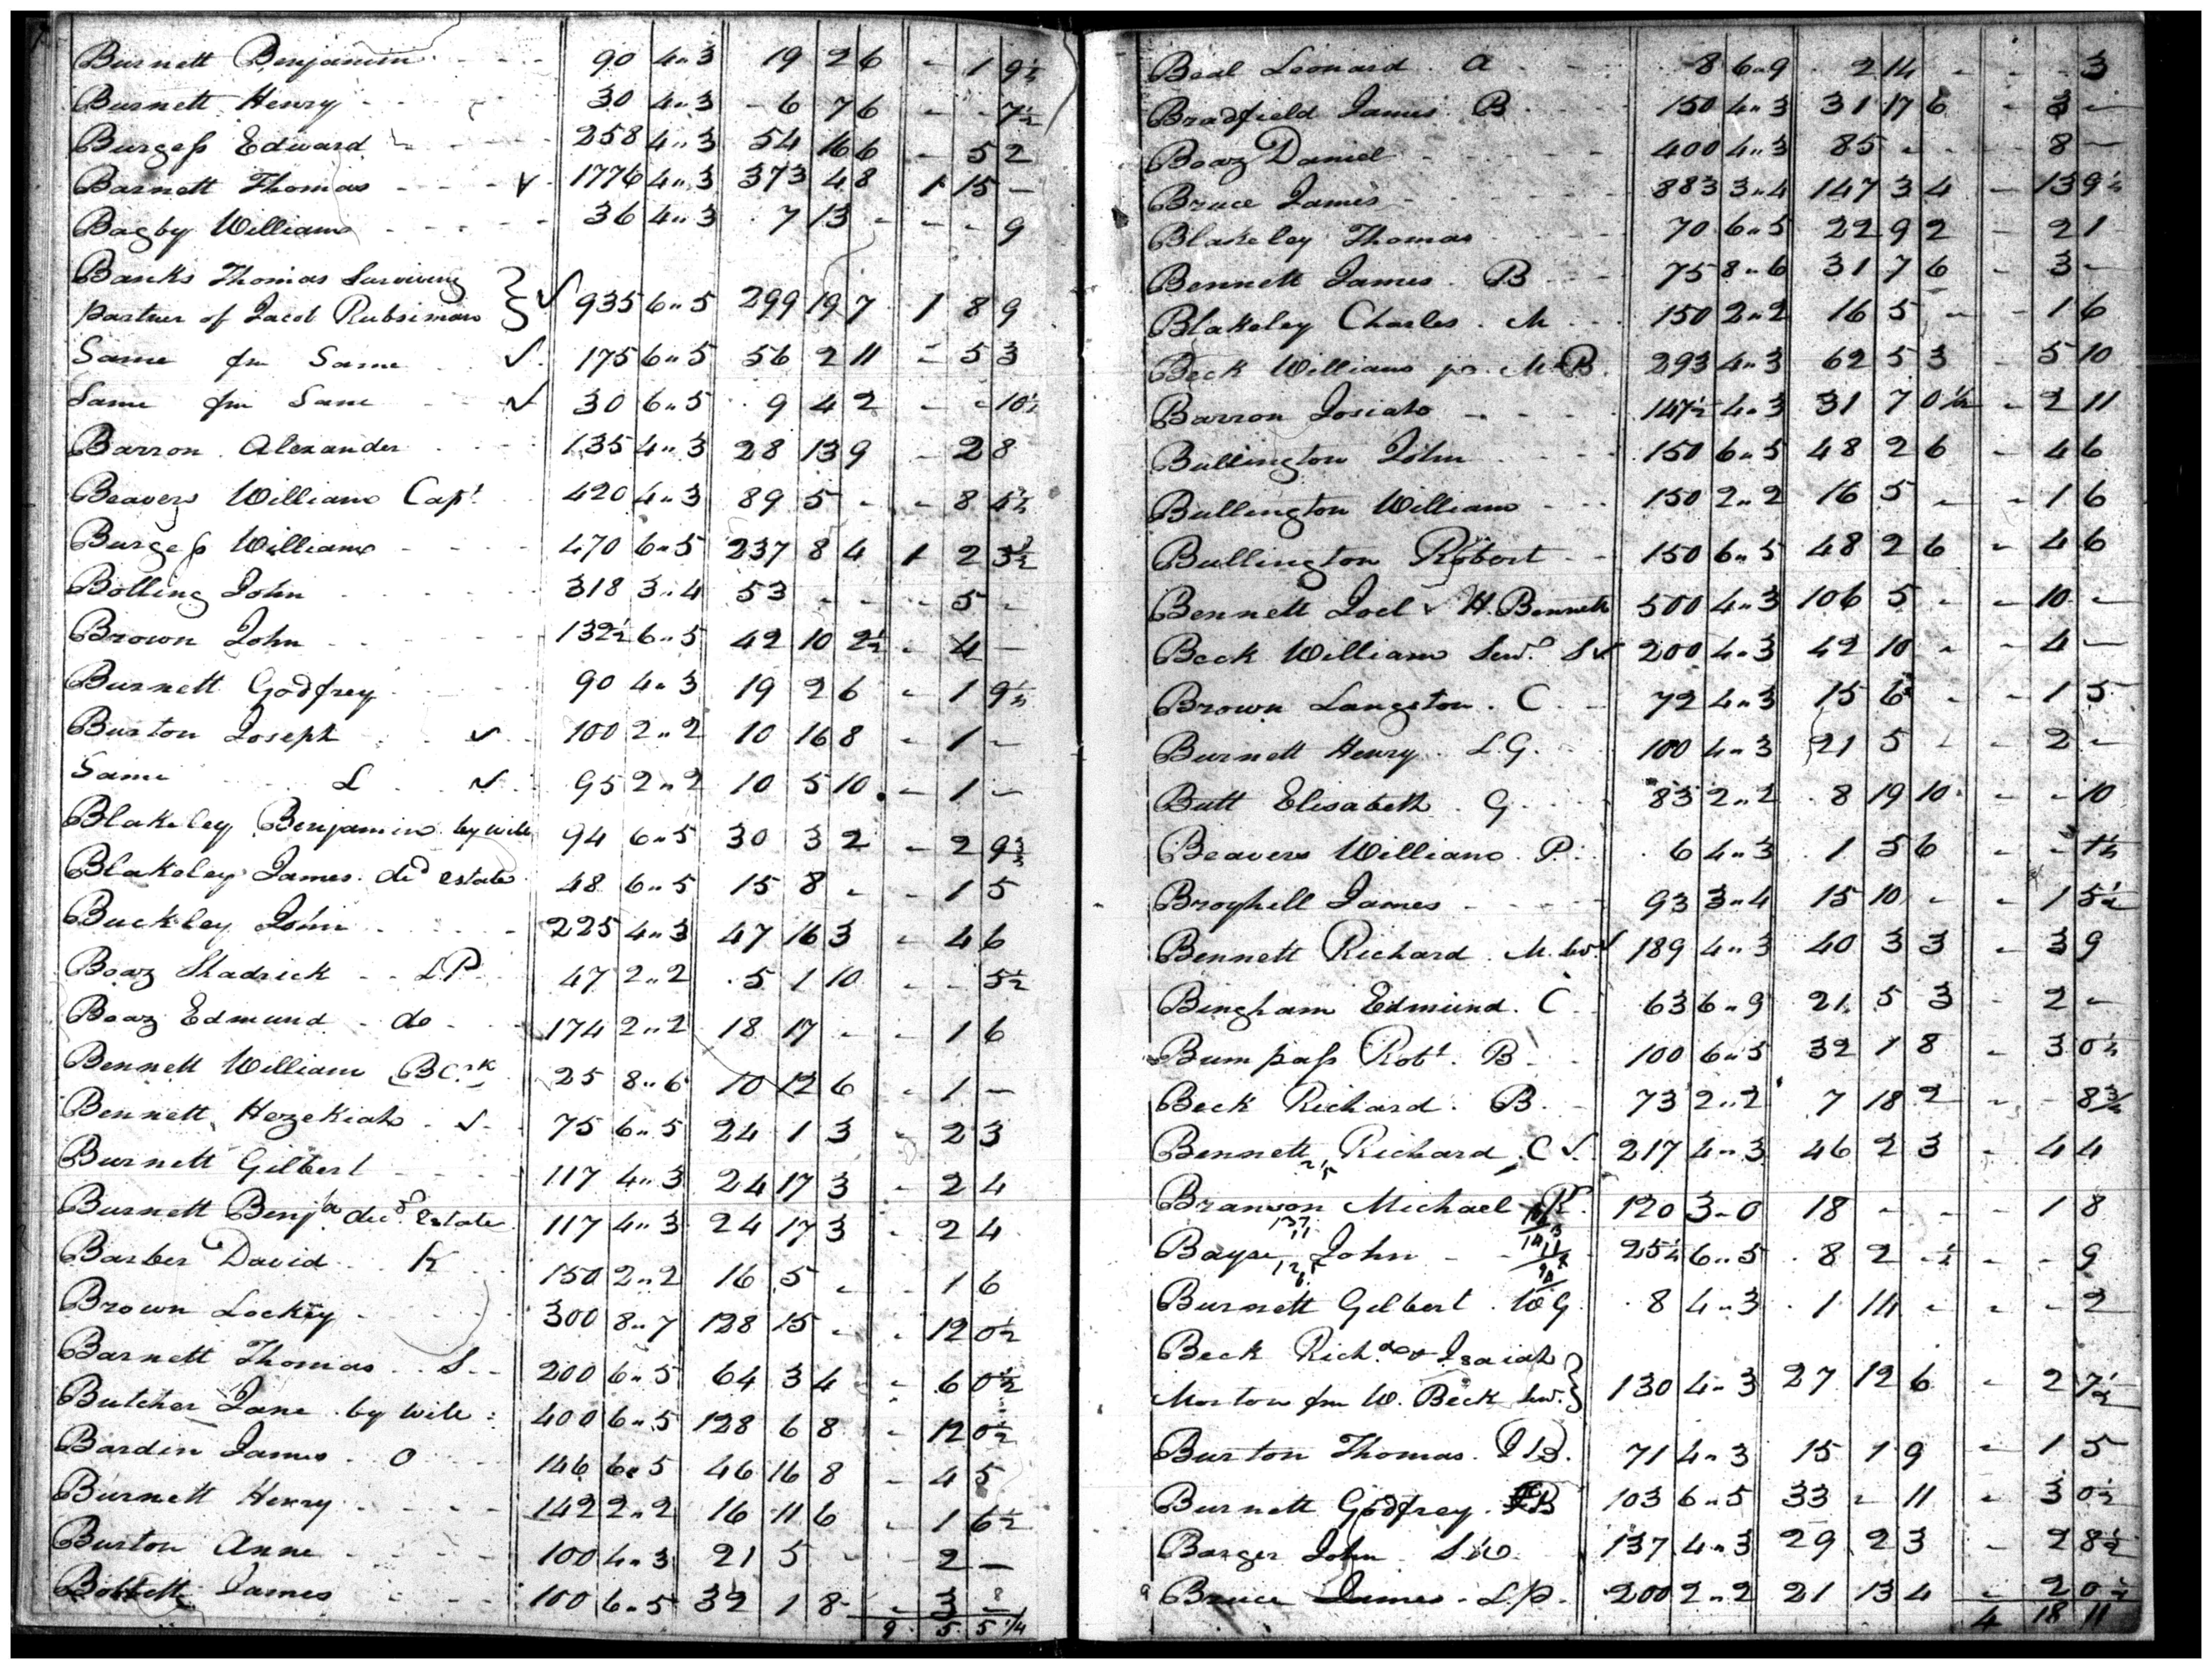 Burnett Benjamin - - - 90 4"3 19 2 6 - 1 9½
Burnett Henry - - - 30 4"3 - 6 7 6 - - 7½
Burgess Edward - - - 258 4"3 54 16 6 - 5 2
Barnett Thomas - - - √ 1776 4"3 373 4 8 1 15 -
Bagby William - - - 36 4"3 7 13 - - - 9
Banks Thomas Surviving
partner of Jacob Rubsiman } √ 935 6"5 299 19 7 1 8 9
Same fm Same √ 175 6"5 56 2 11 - 5 3
Same fm Same √ 30 6"5 9 4 2 - - 10½
Barron Alexander 135 4"3 28 13 9 - 2 8
Beavers William Capt 420 4"3 89 5 - - 8 4½
Burgess William - - - 470 6"5 237 8 4 1 2 3½
Bolling John - - - 318 3"4 53 - - - 5 -
Brown John - - - 132½ 6"5 42 10 2½ - 4 -
Burnett Godfrey - - - 90 4"3 19 2 6 - 1 9½
Burton Joseph √ 100 2"2 10 16 8 - 1 -
Same L √ 95 2"2 10 5 10 - 1 -
Blakeley Benjamin by will 94 6"5 30 3 2 - 2 9¾
Blakeley James decd estate 48 6"5 15 8 - - 1 5
Buckley John - - - 225 4"3 47 16 3 - 4 6
Boaz Shadrick - - LP 47 2"2 5 1 10 - - 5½
Boaz Edmund - do - 174 2"2 18 17 - - 1 6
Bennett William BCrk 25 8"6 10 12 6 - 1 -
Bennett Hezekiah - √ 75 6"5 24 1 3 - 2 3
Burnett Gilbert - - 117 4"3 24 17 3 - 2 4
Burnett Benja decd Estate 117 4"3 24 17 3 - 2 4
Barber David K 150 2"2 16 5 - - 1 6
Brown Lockey - - - 300 8"7 128 15 - - 12 0½
Barnett Thomas S - - 200 6"5 64 3 4 - 6 0½
Butcher Jane by will 400 6"5 128 6 8 - 12 0½
Bardin James O 146 6"5 46 16 8 - 4 5
Burnett Henry - - - 142 2"2 16 11 6 - 1 6½
Burton Anne - - - 100 4"3 21 5 - - 2 -
James - - - 100 6"5 32 1 8 - 3 -
9 5 5¼
Beal Leonard A 8 6"9 2 14 - - - 3
Bradfield James B 150 4"3 31 17 6 - 3 -
Boaz Daniel - - - 400 4"3 85 - - - 8 -
Bruce James - - - 883 3"4 147 3 4 - 13 9½
Blakeley Thomas 70 6"5 22 9 2 - 2 1
Bennett James B 75 8"6 31 7 6 - 3 -
Blakeley Charles M 150 2"2 16 5 - - 1 6
Beck William jr. M B 293 4"3 62 5 3 - 5 10
Barron Josiah - - - 147½ 4"3 31 7 0½ - 2 11
Bullington John - - - 150 6"5 48 2 6 - 4 6
Bullington William - - - 150 2"2 16 5 - - 1 6
Bullington Robert - - 150 6"5 48 2 6 - 4 6
Bennett Joel √ H. Bennett 500 4"3 106 5 - - 10 -
Beck William Senr S √ 200 4"3 42 10 - - 4 -
Brown Langston C 72 4"3 15 6 - - 1 5
Burnett Henry LG 100 4"3 21 5 - - 2 -
Butt Elisabeth G 83 2"2 8 19 10 - - 10
Beavers William P 6 4"3 1 5 6 - - 1½
Broyhill James - - - 93 3"4 15 10 - - 1 5½
Bennett Richard M. 189 4"3 40 3 3 - 3 9
Bingham Edmund C 63 6"9 21 5 3 - 2 -
Bumpass Robt B 100 6"5 32 1 8 - 3 0½
Beck Richard B 73 2"2 7 18 2 - - 8¾
Bennett Richard C √ 217 4"3 46 2 3 - 4 4
Branson Michael R 120 3"0 18 - - - 1 8
Bayse John - - 25¼ 6"5 8 2 -½ - - 9
Burnett Gilbert G 8 4"3 1 14 - - - 2
Beck Richd & Isaiah
Morton fm W. Beck Senr } 130 4"3 27 12 6 - 2 7½
Burton Thomas JB 71 4"3 15 1 9 - 1 5
Burnett Godfrey B 103 6"5 33 - 11 - 3 0½
Barger John 137 4"3 29 2 3 - 2 8½
Bruce James LP 200 2"2 21 13 4 - 2 0½
4 18 11